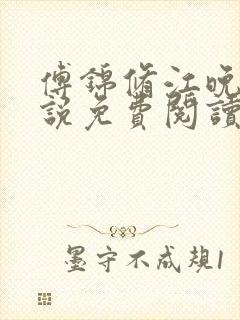 傅錦脩江晚
說免費閱讀
墨守不成規1